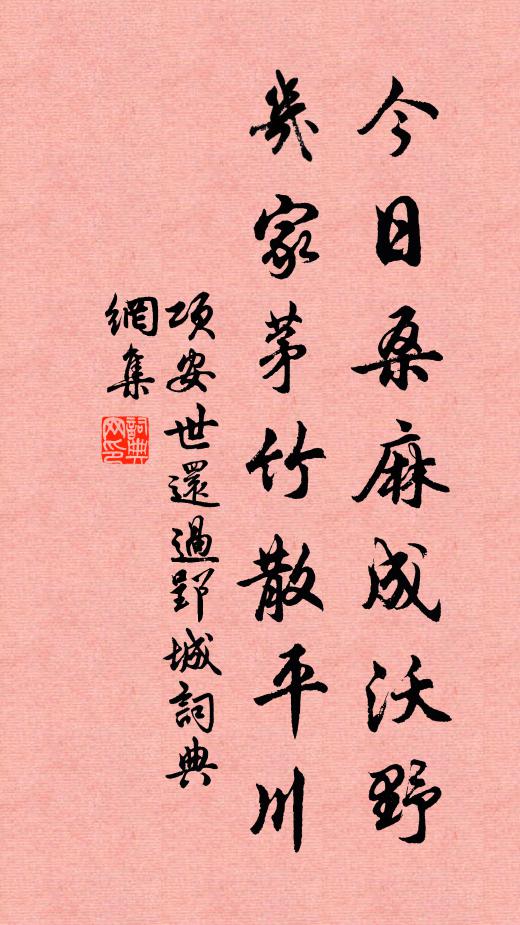 今日桑麻成沃野
幾家茅竹散平川
項安世還過郢城詞典
網集
詞典網印